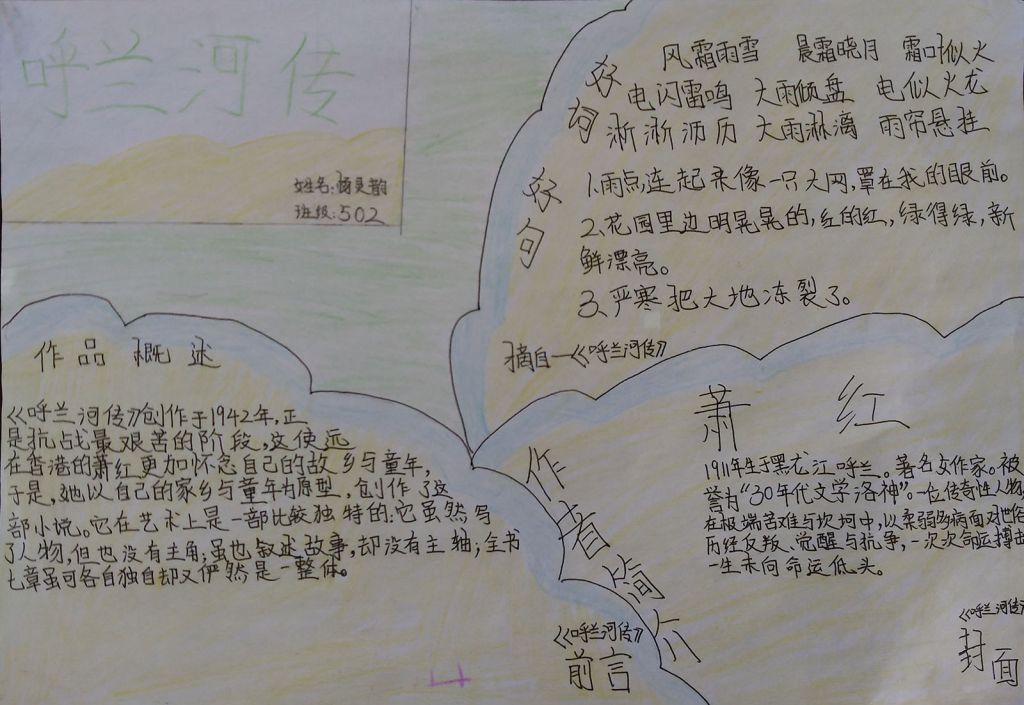 呼兰河传
姓名:
班级:502
好词
风霜雨雪 晨霜晓月 霜叶似火
电闪雷鸣 大雨倾盘 电似火龙
淅淅沥历 大雨淋漓 雨帘悬挂
好句
1.雨点连起来像一只大网,罩在我的眼前。
2、花园里边明晃晃的,红的红,绿得绿,新
鲜漂亮。
3、严寒把大地冻裂了。
摘自一《呼兰河传》
作品概述
《呼兰河传》创作于1942年,正
是抗战最艰苦的阶段,这使远
在香港的萧红更加怀念自己的故乡与童年,
于是,她以自己的家乡与童年为原型,创作了这
部小说。它在艺术上是一部比较独特的:它虽然写
了人物,但也没有主角;虽也叙述故事,却没有主轴;全书
七章虽可各自独自却又俨然是一整体。
作者简介
萧红
1911年生于黑龙江呼兰。著名女作家。被
誉为“30年代文学洛神”。一位传奇性人物
在极端苦难与坎坷中,以柔弱多病面对世俗
历经反叛、觉醒与抗争,一次次命运搏击
一生未向命运低头。
《呼兰河传》
前言
《呼兰河传》
封面